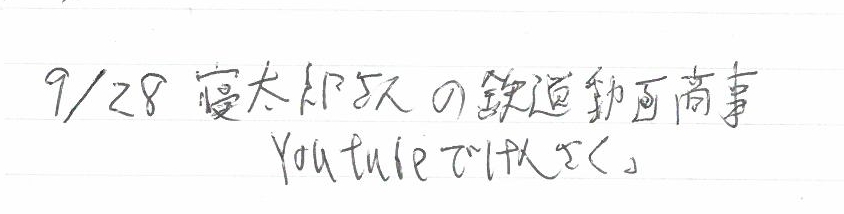 9/28 寝太郎さんの鉄道動画商事
Youtubeでけんさく」